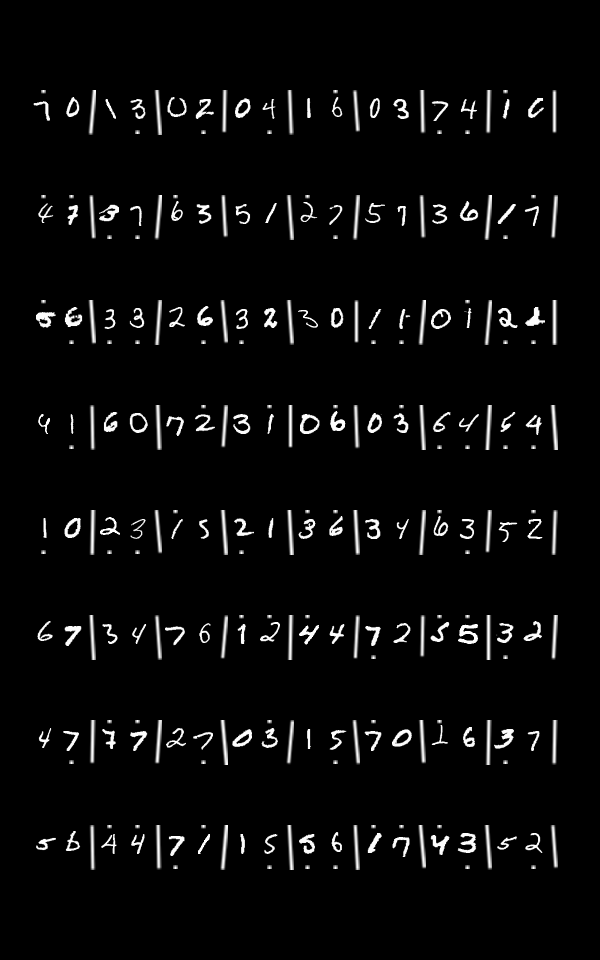 7 0 | 1 3 | 0 2 | 0 4 | 1 6 | 0 3 | 7 4 | 1 0 |
4 7 | 3 7 | 6 3 | 5 1 | 2 7 | 5 7 | 3 6 | 1 7 |
5 6 | 3 3 | 2 6 | 3 2 | 3 0 | 1 1 | 0 1 | 2 2 |
9 1 | 6 0 | 7 2 | 3 1 | 0 6 | 0 3 | 6 4 | 5 4 |
1 0 | 2 3 | 1 5 | 2 1 | 3 6 | 3 4 | 6 3 | 5 2 |
6 7 | 3 4 | 7 6 | 1 2 | 4 4 | 7 2 | 5 5 | 3 2 |
4 7 | 7 7 | 2 7 | 0 3 | 1 5 | 7 0 | 1 6 | 3 7 |
5 6 | 4 4 | 7 1 | 1 5 | 5 6 | 1 7 | 4 3 | 5 2 |